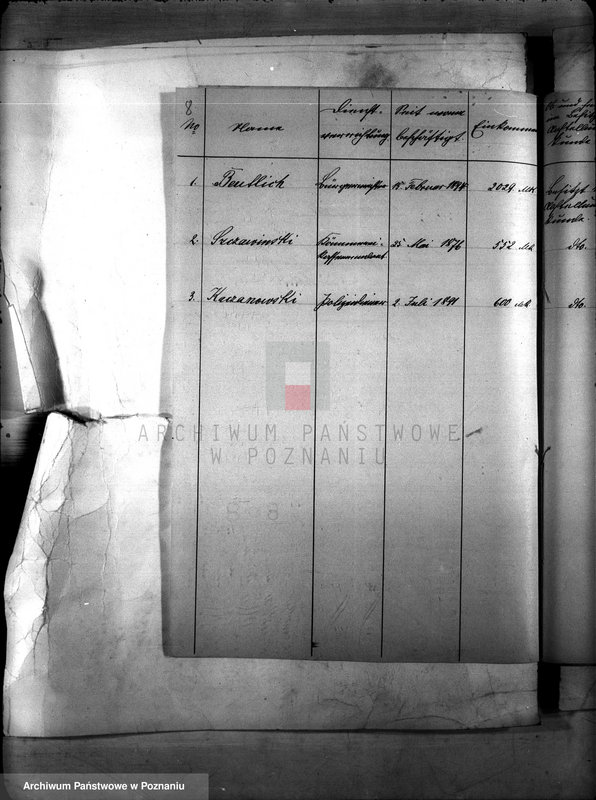 8
No Name Dienst- Seit wann Einkommen
verrichtung beschäftigt.
1. Beutlich Bürgermeister 15. Februar 2029 Mk
2. Szczawinski Kämmerei- 25 Mai 1876 552 Mk dto.
3. Kaczanowski Polizeidiener 2. Juli 1891 600 Mk. dto.
ARCHIWUM PAŃSTWOWE
W POZNANIU
Archiwum Państwowe w Poznaniu